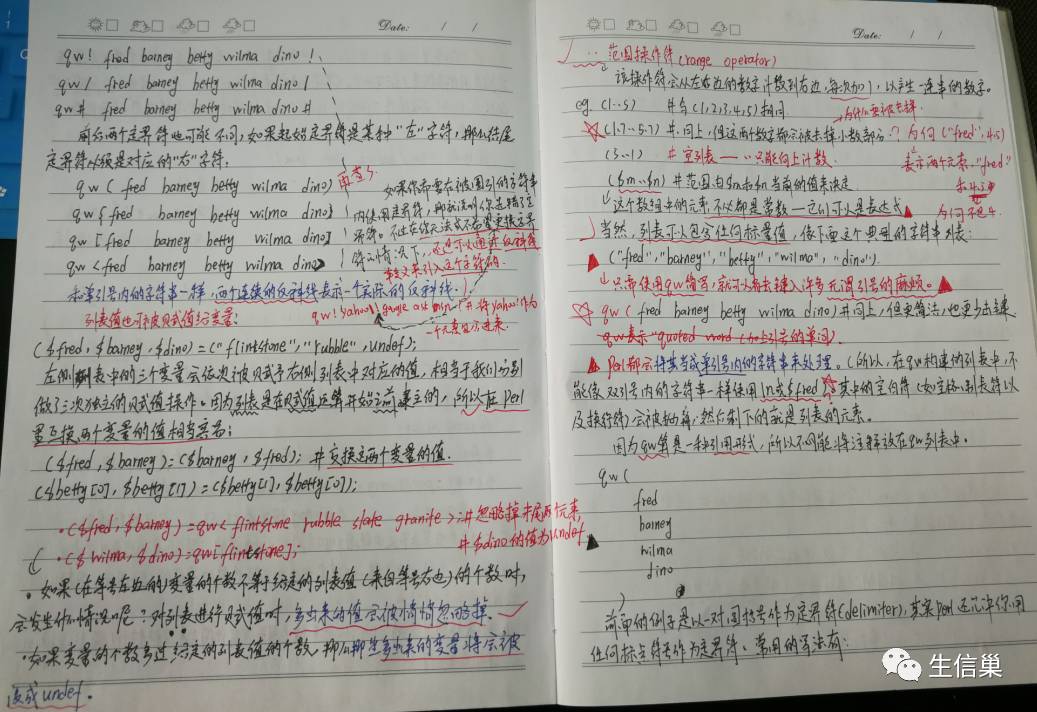 Date: / /
qw! fred barney betty wilma dino !
qw/ fred barney betty wilma dino /
qw# fred barney betty wilma dino #
前后两个定界符也可能不同,如果起始定界符是某种"左"字符,那么结尾
定界符必须是对应的"右"字符:
qw ( fred barney betty wilma dino)
qw{ fred barney betty wilma dino}
qw [ fred barney betty wilma dino]
qw <fred barney betty wilma dino>
如果你需要在被圈引的字符串
内使用定界符,那
和单引号内的字符串一样,两个连续的反斜线表示一个实际的反斜线.
qw! yahoo\! google ask msn ! #将yahoo!作为
一个元素
列表值也可被赋值给变量:
($fred, $barney, $dino)=("flintstone","rubble",undef);
左侧列表中的三个变量会依次被赋予右侧列表中对应的值,相当于我们分别
做了三次独立的赋值操作。因为列表是在赋值运算开始之前建立的,所以在perl
里互换两个变量的值相当容易:
($fred, $barney)=($barney, $fred); #交换这两个变量的值.
($betty[0], $betty[1])=($betty[1], $betty[0]);
·($fred, $barney)=qw< flintstone rubble slate granite >;#忽略掉末尾两个元素
·($wilma, $dino)=qw[flintstone]; #$dino的值为undef
·如果(在等号左边的)变量的个数不等于给定的列表值(来自等号右边)的个数时,
会发生什么情况呢?对列表进行赋值时,多出来的值会被悄悄忽略掉.
·如果变量的个数多过给定的列表值的个数,那么那些多出来的变量将会被
设成undef。
Date: / /
.. 范围操作符(range operator)
该操作符会从左边的数字计数到右边,每次加1,以产生一连串的数字。
eg. (1..5) #与(1,2,3,4,5)相同
(1.7..5.7) #同上,但这两个数字都会被去掉小数部分
为何("fred",4.5)
表示两个元素,"fred"
和4.5
为何不是4.
(5..1) #空列表——..只能向上计数
($m..$n) #范围由$m和$n当前的值来决定
这个数组中的元素不必都是常数—它们可以是表达式
当然,列表可以包含任何标量值,像下面这个典型的字符串列表:
("fred","barney","betty","wilma","dino").
只需使用qw简写,就可以省去键入许多无谓引号的麻烦。
qw( fred barney betty wilma dino)#同上,但更简洁,也更少击键
qw表示"quoted word(加上引号的单词)
perl都会将其当成单引号内的字符串来处理。(所以,在qw构建的列表中,不
能像双引号内的字符串一样使用\n或$fred)其中的空白符(如空格、制表符以
及换行符)会被抛弃,然后剩下的就是列表的元素。
因为qw算是一种引用形式,所以不可能将注释放在qw列表中.
qw(
fred
barney
wilma
dino
)
前面的例子是以一对圆括号作为定界符(delimiter),其实perl还允许你用
任何标点符号作为定界符。常用的写法有:
生信巢